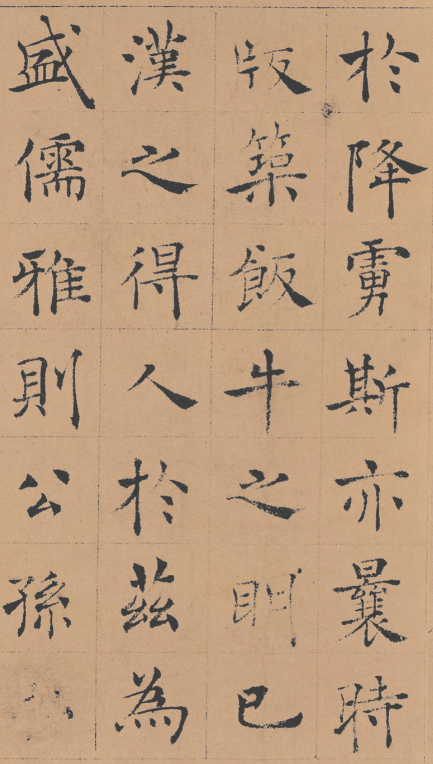 於降虜斯亦曩時
版築飯牛之明已
漢之得人於茲為
盛儒雅則公孫